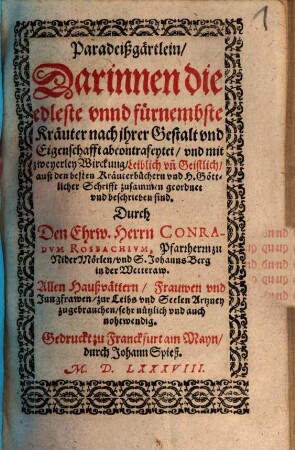 1
Paradeißgärtlein/
Darinnen die
edleste vnnd fürnembste
Kräuter nach jhrer Gestalt vnd
Eigenschafft abcontrafeytet/ vnd mit
zweyerley Wirckung/Leiblich vñ Geistlich/
auß den besten Kräuterbüchern vnd H. Gött-
licher Schrifft zusammen geordnet
vnd beschrieben sind.
Durch
Den Ehrw. Herrn CONRA-
DVM ROSBACHIVM, Pfarrherrn zu
Nider Mörlen/vnd S. Johanns Berg
in der Wetteraw.
Allen Haußvättern/ Frauwen vnd
Jungfrawen/zur Leibs vnd Seelen Artzney
zugebrauchen/sehr nützlich vnd auch
nohtwendig.
Gedruckt zu Franckfurt am Mayn/
durch Johann Spieß.
M. D. LXXXVIII.